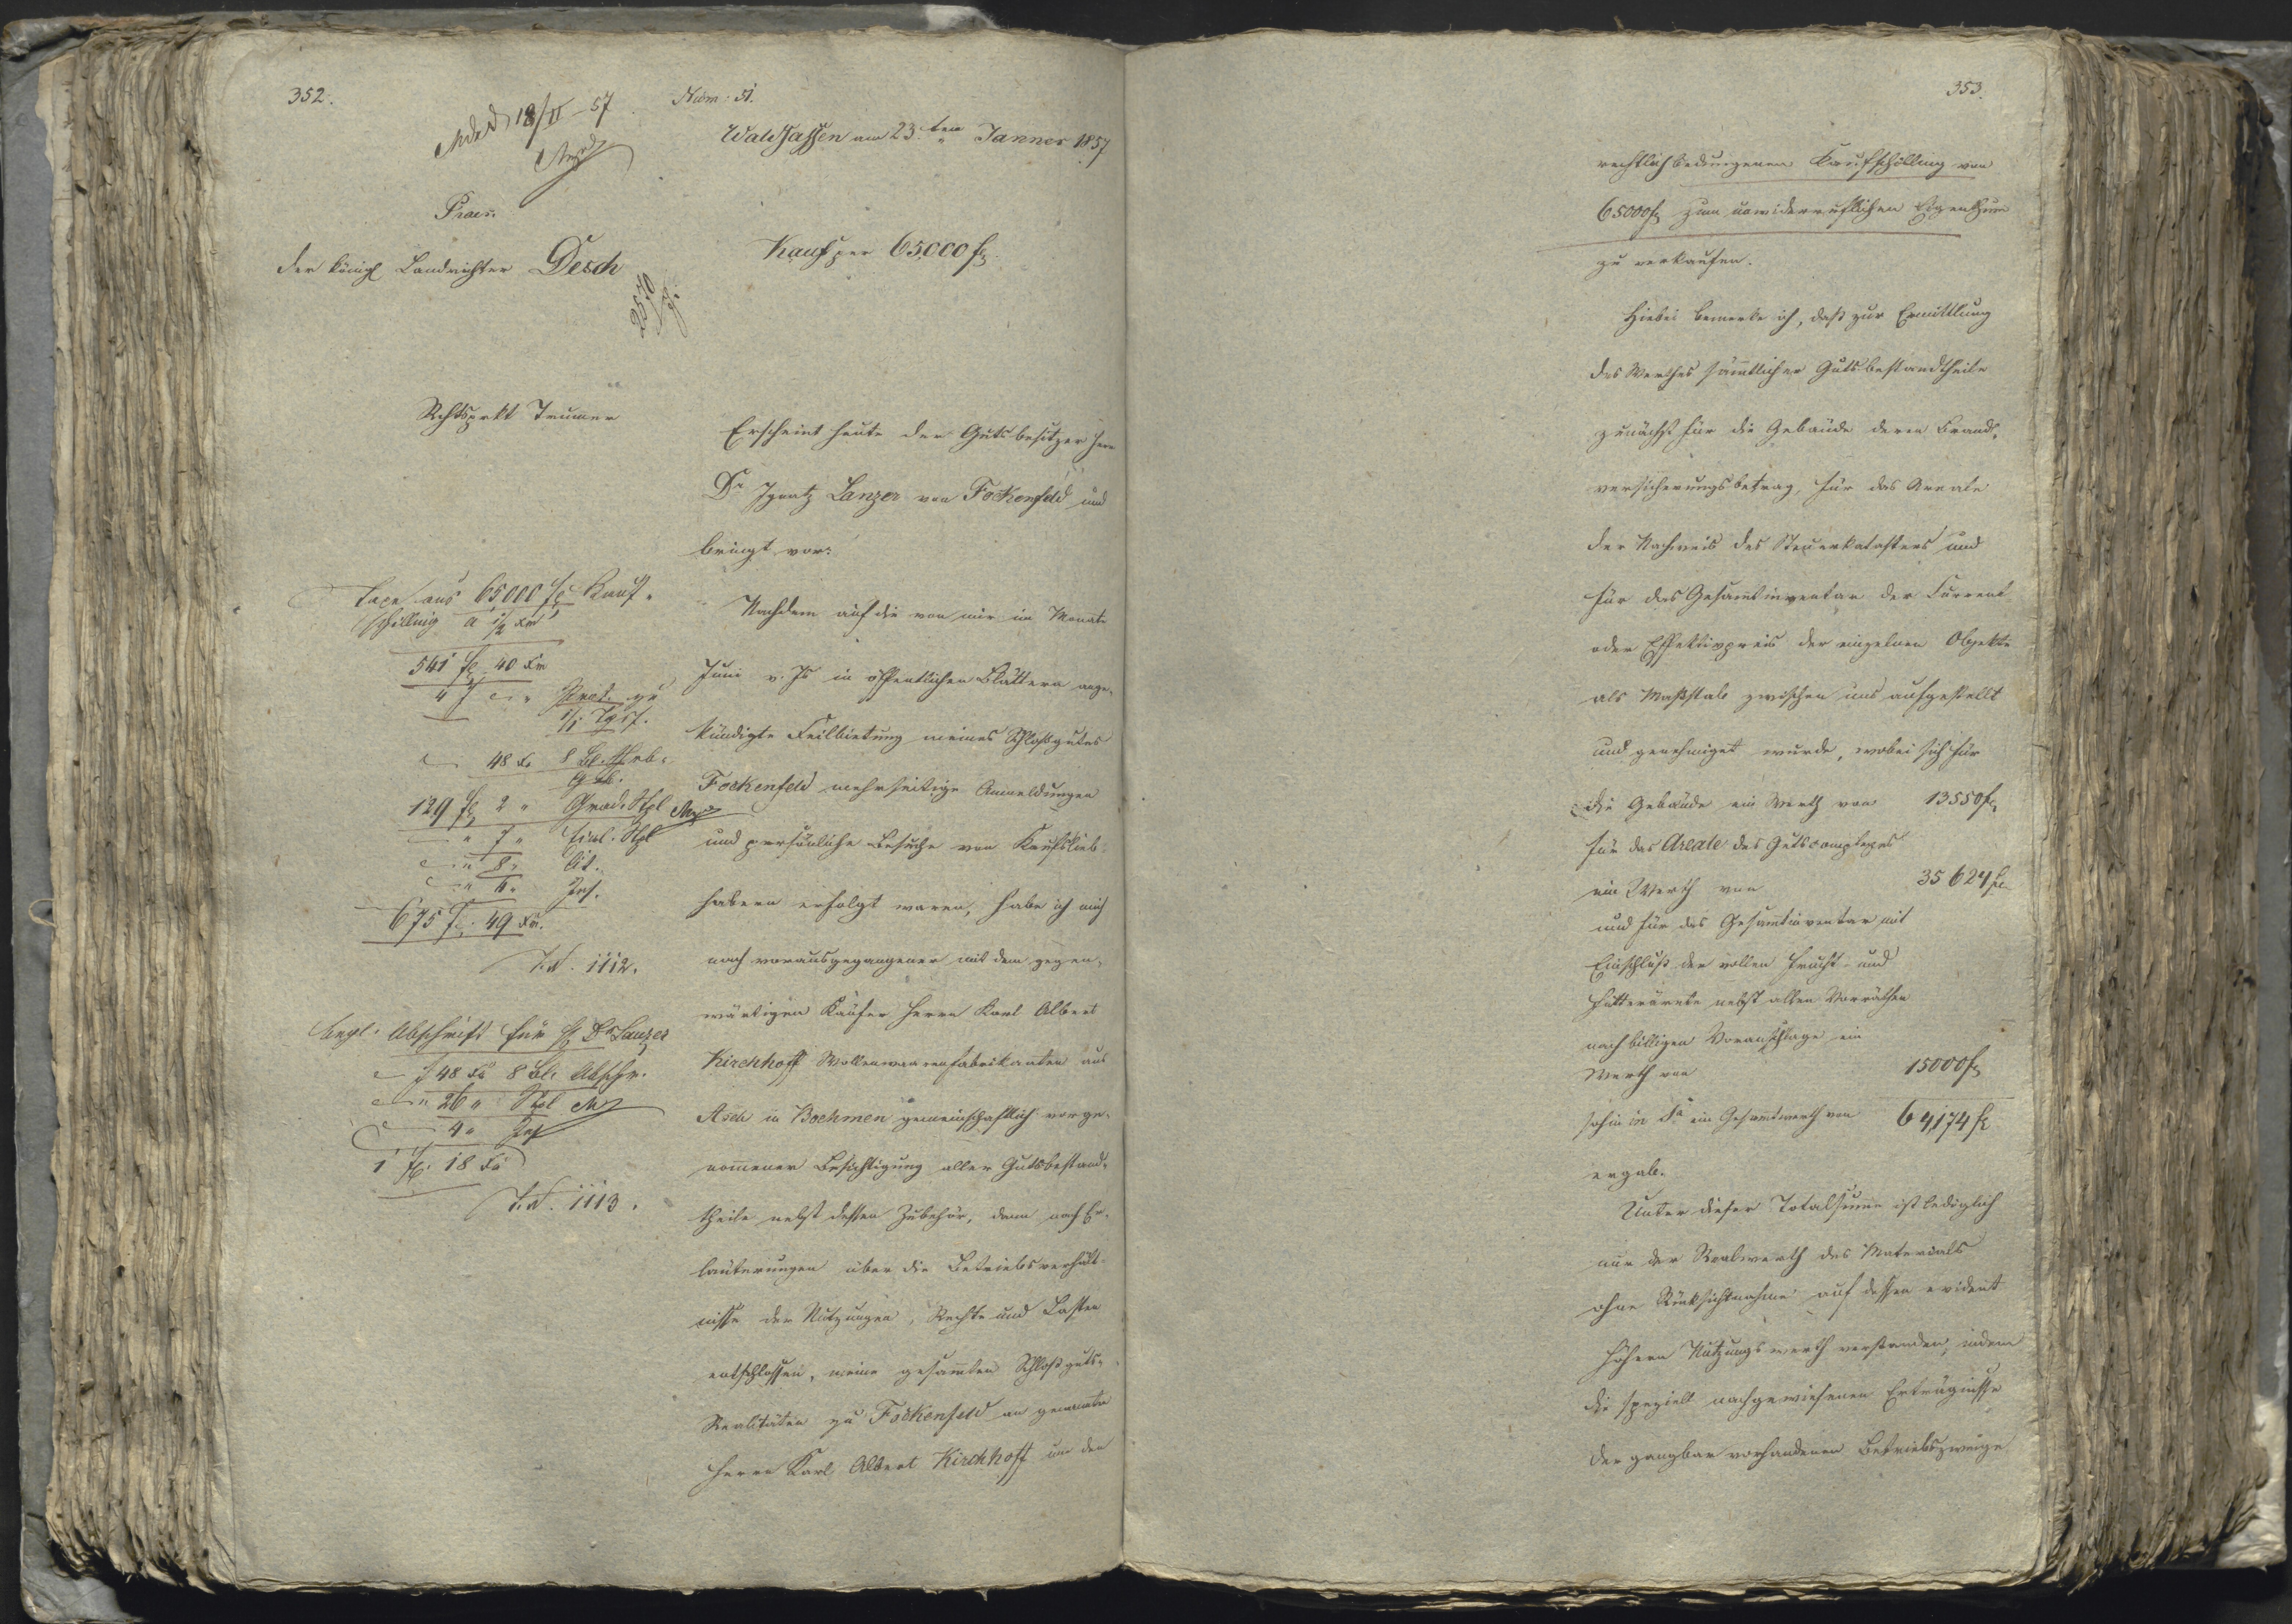 352.
18/II - 57
Num: 51.
Waldsassen am 23ten Janner 1857
Praes.
Der königl Landrichter Desch
Kauf per 65,000 f
2570
Rchtsprkt Trumer
Erscheint heute der Gutsbesitzer Herr
Dr Ignatz Lanzer von Fockenfeld und
bringt vor:
Nachdem auf die von mir im Monate
Juni v. Js in öffentlichen Blättern ange-
kündigte Feilbietung meines Schloßgutes
Fockenfeld mehrseitige Anmeldungen
und persönliche Besuche von Kaufslieb-
habern erfolgt waren, habe ich mich
nach vorausgegangener mit dem gegen-
wärtigen Käufer Herrn Karl Albert
Kirchhoff Wollenwaarenfabrikanten aus
Asch in Boehmen gemeinschaftlich vorge-
nommener Besichtigung aller Gutsbestand-
theile nebst dessen Zubehör, dann nach Er-
läuterungen über die Betriebsverhält-
nisse der Nutzungen, Rechte und Lasten
entschlossen, meine gesamten Schloßguts-
Realitäten zu Fockenfeld an genannten
Herrn Karl Albert Kirchhoff um den
Taxe aus 65000 fl Kauf-
schilling a 1/2 xr
541 fl 40 xr
4 f Prot. zu
1/1 Tgsf.
48 x 8 Bl.
129 fl 2 " Grad. Stpl
" 7 " Stpl
" 8 " Cit.
" 6 " Ins.
675 f. 49 xr.
T.N. 1112.
Abschrift für H Dr Lanzer
f 48 xr 8 Bl. Abschr.
" 26 " Stpl
4 " Ins
1 fl. 18 xr
T.N. 1113.
353.
rechtlich bedungenen Kaufschilling von
65000 f zum unwiderruflichen Eigenthum
zu verkaufen.
Hiebei bemerke ich, daß zur Ermittlung
des Werthes sämtlicher Gutsbestandtheile
zunächst für die Gebäude deren Brand-
versicherungsbetrag, für das Areale
der Nachweis des Steuerkatasters und
für das Gesamtinventar der Current
oder Effektivpreis der einzelnen Objekte
als Maßstab zwischen uns aufgestellt
und genehmiget wurde, wobei sich für
die Gebäude ein Werth von 13550 f
für das Areale des Gutscomplexes
ein Werth von 35624 f
und für das Gesamtinventar mit
Einschluß der vollen Frucht- und
Futterärnte nebst allen Vorräthen
nach billigem Voranschlage ein
Werth von 15000 f
sohin in Sa ein Gesamtwerth von 64,174 f
ergab.
Unter dieser Totalsumme ist lediglich
nur der Realwerth des Materials
ohne Rücksichtnahme auf dessen evident
höhern Nutzungswerth verstanden, indem
die speziell nachgewiesenen Erträgnisse
der gangbar vorhandenen Betriebszweige